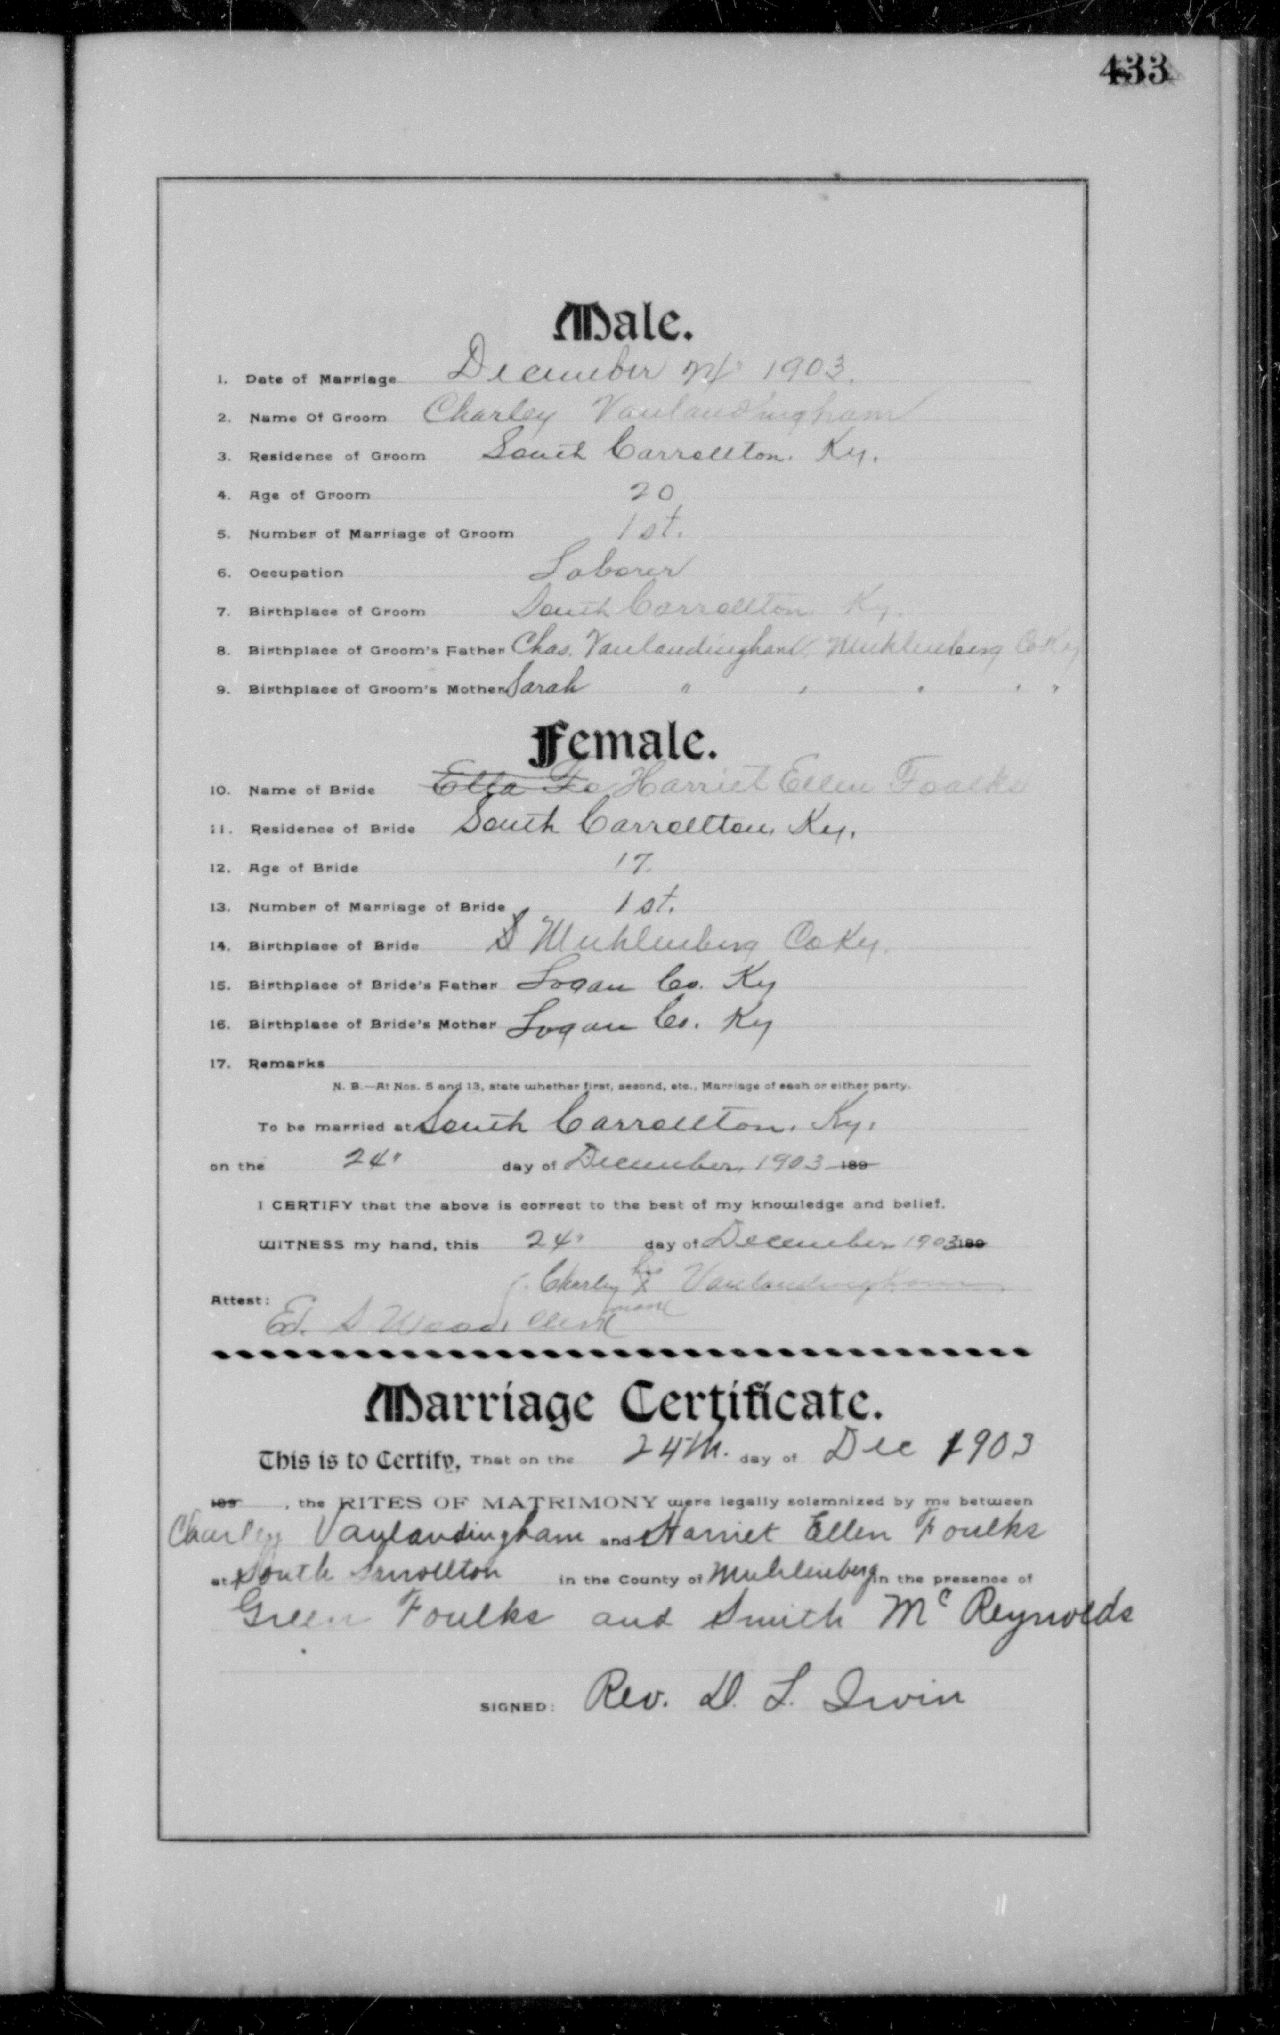 433
Male.
1. Date of Marriage December 24" 1903.
2. Name Of Groom Charley Vanlandingham
3. Residence of Groom South Carrollton. Ky.
4. Age of Groom 20
5. Number of Marriage of Groom 1st.
6. Occupation Laborer
7. Birthplace of Groom South Carrollton. Ky.
8. Birthplace of Groom's Father Chas. Vanlandingham, Muhlenberg Co Ky
9. Birthplace of Groom's Mother Sarah " " " " "
Female.
10. Name of Bride Ella Fo Harriet Ellen Foalks
11. Residence of Bride South Carrollton, Ky.
12. Age of Bride 17.
13. Number of Marriage of Bride 1st.
14. Birthplace of Bride S Muhlenberg Co Ky.
15. Birthplace of Bride's Father Logan Co. Ky
16. Birthplace of Bride's Mother Logan Co. Ky
17. Remarks
N. B.—At Nos. 5 and 13, state whether first, second, etc., Marriage of each or either party.
To be married at South Carrollton. Ky.
on the 24" day of December, 1903 189
I CERTIFY that the above is correct to the best of my knowledge and belief.
WITNESS my hand, this 24" day of December 1903 189
Charley his X Vanlandingham
Attest: mark
Ed. S Wood, Clerk
Marriage Certificate.
This is to Certify, That on the 24th. day of Dec 1903
189 , the RITES OF MATRIMONY were legally solemnized by me between
Charley Vanlandingham and Harriet Ellen Foulks
at South Carrollton in the County of Muhlenberg in the presence of
Green Foulks and Smith Mc Reynolds
SIGNED: Rev. D. L. Irvin